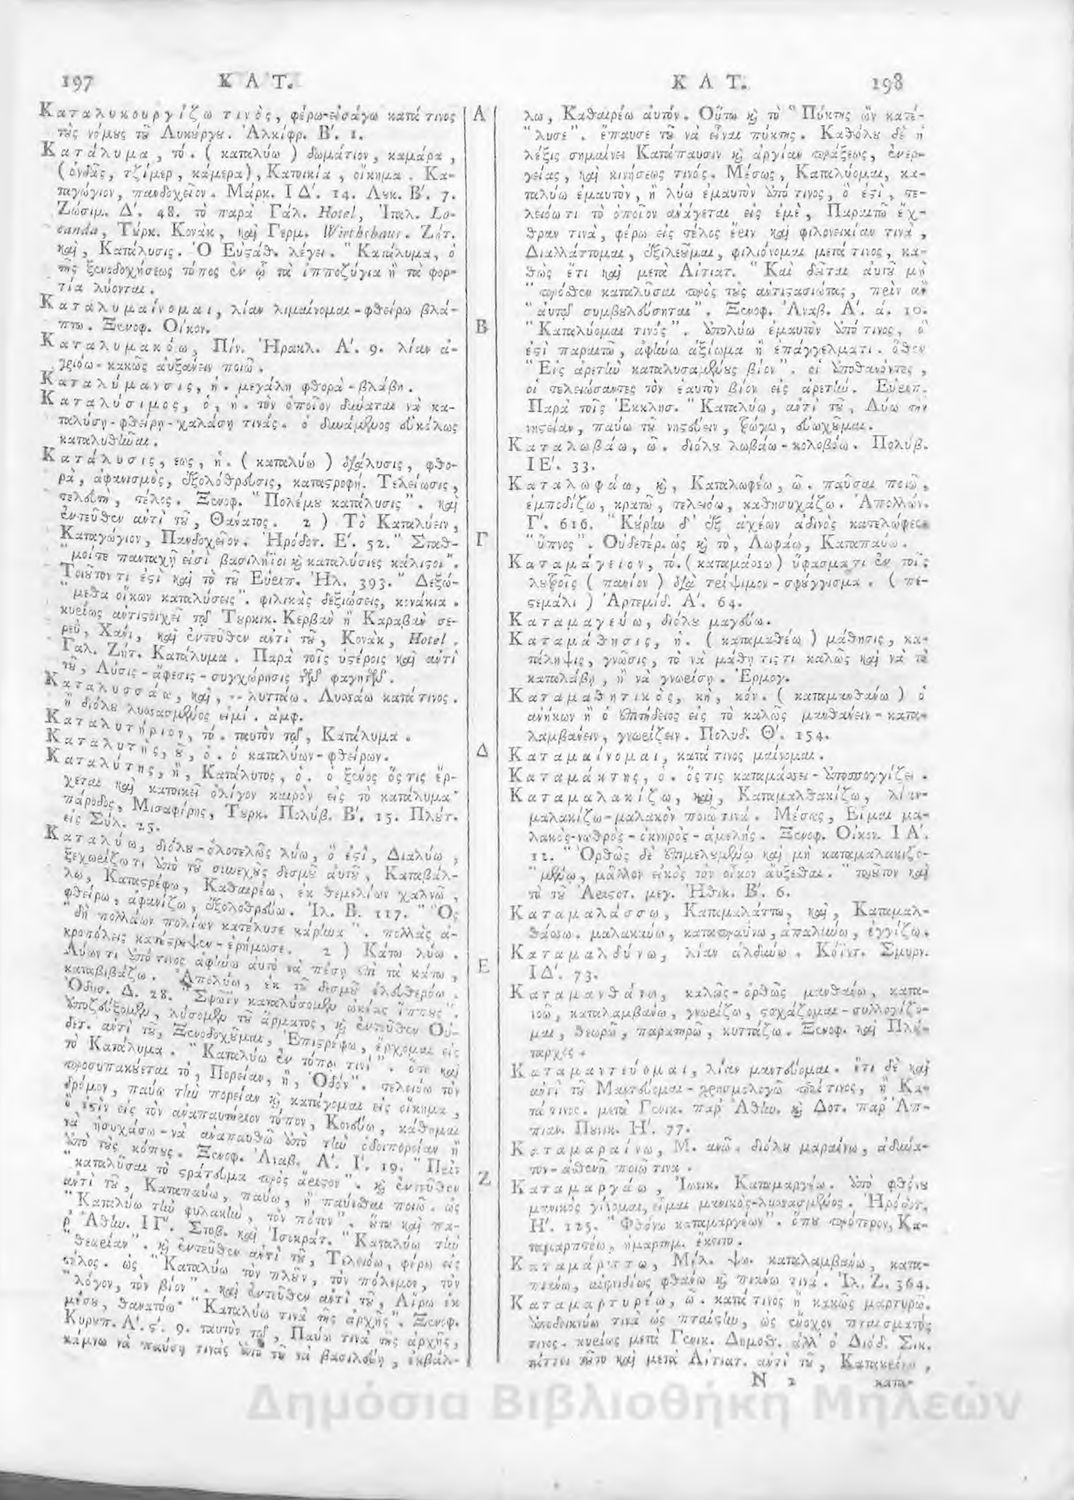 197 ΚΑΤ.
Καταλυκουργίζω τινὸς, φέρω-εἰσάγω κατά τινος
τοὺς νόμους τοῦ Λυκούργου. Ἀλκίφρ. Β'. 1.
Κατάλυμα, τό. ( καταλύω ) δωμάτιον, καμάρα,
(ὀνδᾶς, τζίμερ, κάμερα), Κατοικία, οἴκημα. Κα-
ταγώγιον, πανδοχεῖον. Μάρκ. ΙΔ'. 14. Λουκ. Β'. 7.
Ζώσιμ. Δ'. 48. τὸ παρὰ Γάλ. Hotel, Ἰταλ. Lo-
canda, Τύρκ. Κονάκ, καὶ Γερμ. Wirthshaus. Ζήτ.
καὶ, Κατάλυσις. Ὁ Εὐστάθ. λέγει. "Κατάλυμα, ὁ
τῆς ξενοδοχήσεως τόπος ἐν ᾧ τὰ ἱπποζύγια ἢ τὰ φορ-
τία λύονται.
Καταλυμαίνομαι, λίαν λιμαίνομαι-φθείρω βλά-
πτω. Ξενοφ. Οἰκον.
Καταλυμακόω, Πίν. Ἡρακλ. Α'. 9. λίαν ἀ-
χρειόω-κακῶς αὐξάνειν ποιῶ.
Καταλύμανσις, ἡ. μεγάλη φθορὰ-βλάβη.
Καταλύσιμος, ὁ, ἡ. τὸν ὁποῖον δύναται νὰ κα-
ταλύσῃ-φθείρῃ-χαλάσῃ τινάς. ὁ δυνάμενος εὐκόλως
καταλυθῆναι.
Κατάλυσις, εως, ἡ. ( καταλύω ) διάλυσις, φθο-
ρὰ, ἀφανισμὸς, ἐξολόθρευσις, καταστροφή. Τελείωσις,
τελευτὴ, τέλος. Ξενοφ. "Πολέμου κατάλυσις". καὶ
ἐντεῦθεν ἀντὶ τοῦ, Θανάτος. 2 ) Τὸ Καταλύειν,
Καταγώγιον, Πανδοχεῖον. Ἡρόδοτ. Ε'. 52. "Σταθ-
"μοί τε πανταχῆ εἰσὶ βασιλήϊοι καὶ καταλύσιες κάλλισοι".
Τοιοῦτόν τι ἐστὶ καὶ τὸ τοῦ Εὐριπ. Ἠλ. 393. "Δεξώ-
"μεθα οἴκων καταλύσεις". φιλικὰς δεξιώσεις, κονάκια.
κυρίως ἀντιστοιχεῖ τῷ Τουρκικ. Κερβὰν ἢ Καραβὰν σε-
ρεῦ, Χαὶ, καὶ ἐντεῦθεν ἀντὶ τοῦ, Κονάκ, Hotel.
Γαλ. Ζήτ. Κατάλυμα. Παρὰ τοῖς ὑστέροις καὶ ἀντὶ
τοῦ, Λύσις-ἄφεσις-συγχώρησις τῶν φαγητῶν.
Καταλυσσάω, καὶ, -- λυττάω. Λυσσάω κατά τινος.
ἢ διόλου λυσσασμένος εἰμί. ἀμφ.
Καταλυτήριον, τό. ταυτὸν τῷ, Κατάλυμα.
Καταλυτὴς, οῦ, ὁ. ὁ καταλύων-φθείρων.
Καταλύτης, ἢ, Κατάλυτος, ὁ. ὁ ξένος ὅςτις ἔρ-
χεται καὶ κατοικεῖ ὀλίγον καιρὸν εἰς τὸ κατάλυμα
πάροδος, Μισαφίρης, Τυρκ. Πολύβ. Β'. 15. Πλουτ.
εἰς Σύλ. 25.
Καταλύω, διόλου-ὁλοτελῶς λύω, ὅ ἐστὶ, Διαλύω,
ξεχωρίζω τι ἀπὸ τοῦ συνεχοῦς δεσμοῦ αὐτοῦ, Καταβάλ-
λω, Καταστρέφω, Καθαιρέω, ἐκ θεμελίων χαλνῶ,
φθείρω, ἀφανίζω, ἐξολοθρεύω. Ἰλ. Β. 117. "Ὃς
"δὴ πολλάων πολίων κατέλυσε κάρηνα". πολλὰς ἀ-
κροπόλεις κατέστρεψεν-ἐρήμωσε. 2 ) Κάτω λύω.
Λύων τι ἀπό τινος ἀφίνω αὐτὸ νὰ πέσῃ ἐπὶ τὰ κάτω,
καταβιβάζω. Ἀπολύω, ἐκ τοῦ δεσμοῦ ἐλευθερόω.
Ὀδυσ. Δ. 28. "Σφῶιν καταλύσομεν ὠκέας ἵππους.
ἀποζεύξομεν, λύσομεν τοῦ ἅρματος, καὶ ἐντεῦθεν Οὐ-
δετ. ἀντὶ τοῦ, Ξενοδοχοῦμαι, Ἐπιστρέφω, ἔρχομαι εἰς
τὸ Κατάλυμα. "Καταλύω ἐν τόπῳ τινί". ὅτε καὶ
προσυπακούεται τὸ, Πορείαν, ἢ, Ὁδόν". τελειόω τὸν
δρόμον, παύω τὴν πορείαν καὶ κατάγομαι εἰς οἴκημα,
ὅ ἐστιν εἰς τὸν ἀναπαυτήριον τόπον, Κονεύω, κάθημαι
νὰ ἡσυχάσω-νὰ ἀναπαυθῶ ἀπὸ τὴν ὁδοιπορείαν ἢ
ἀπὸ τοὺς κόπους. Ξενοφ. Ἀναβ. Α'. Γ'. 19. "Πρὶν
"καταλῦσαι τὸ στράτευμα πρὸς ἄριστον". καὶ ἐντεῦθεν
ἀντὶ τοῦ, Καταπαύω, παύω, ἢ παύεσθαι ποιῶ. ὡς
"Καταλύω τὴν φυλακὴν, τὸν πότον". οὕτω καὶ πα-
ρ' Ἀθήν. ΙΓ'. Στοβ. καὶ Ἰσοκράτ. "Καταλύω τὴν
"θεωρίαν". καὶ ἐντεῦθεν ἀντὶ τοῦ, Τελειόω, φέρω εἰς
τέλος. ὡς "Καταλύω τὸν πλοῦν, τὸν πόλεμον, τὸν
"λόγον, τὸν βίον". καὶ ἐντεῦθεν ἀντὶ τοῦ, Αἴρω ἐκ
μέσου, θανατόω "Καταλύω τινὰ τῆς ἀρχῆς". Ξενοφ.
Κυρυπ. Α'. ς'. 9. ταυτὸν τῷ, Παύω τινὰ τῆς ἀρχῆς,
κάμνω νὰ παύσῃ τινὰς ἀπὸ τοῦ νὰ βασιλεύῃ, ἐκβάλ-
Α
Β
Γ
Δ
Ε
Ζ
ΚΑΤ. 198
λω, Καθαιρέω αὐτόν. Οὕτω καὶ τὸ "Πύκτης ὢν κατέ-
"λυσε". ἔπαυσε τοῦ νὰ εἶναι πύκτης. Καθόλου δὲ ἡ
λέξις σημαίνει Κατάπαυσιν καὶ ἀργίαν πράξεως, ἐνερ-
γείας, καὶ κινήσεως τινός. Μέσως, Καταλύομαι, κα-
ταλύω ἐμαυτὸν, ἢ λύω ἐμαυτὸν ἀπό τινος, ὅ ἐστὶ, τε-
λειόω τι τὸ ὁποῖον ἀνάγεται εἰς ἐμὲ, Παραιτῶ ἔχ-
θραν τινὰ, φέρω εἰς τέλος ἔριν καὶ φιλονεικίαν τινὰ,
Διαλλάττομαι, ἐξιλεοῦμαι, φιλιόνομαι μετά τινος, κα-
θὼς ἔτι καὶ μετὰ Αἰτιατ. "Καὶ δεῖται αὐτοῦ μὴ
"πρόσθεν καταλῦσαι πρὸς τοὺς ἀντιστασιώτας, πρὶν ἂν
"αὐτῷ συμβουλεύσηται". Ξενοφ. Ἀναβ. Α'. α. 10.
"Καταλύομαι τινός". ἀπολύω ἐμαυτὸν ἀπό τινος, ὅ
ἐστὶ παραιτῶ, ἀφίνω ἀξίωμα ἢ ἐπάγγελμά τι. ὅθεν
"Εἰς ἀρετὴν καταλυσαμένους βίον". οἱ ἀποθανόντες,
οἱ τελειώσαντες τὸν ἑαυτὸν βίον εἰς ἀρετήν. Εὐριπ.
Παρὰ τοῖς Ἐκκλησ. "Καταλύω, ἀντὶ τοῦ, Λύω τὴν
νηστείαν, παύω τοῦ νηστεύειν, τρώγω, εὐωχοῦμαι.
Καταλωβάω, ῶ. διόλου λωβάω-κολοβόω. Πολύβ.
ΙΕ'. 33.
Καταλωφάω, καὶ, Καταλωφέω, ῶ. παῦσαι ποιῶ,
ἐμποδίζω, κρατῶ, τελειόω, καθησυχάζω. Ἀπολλων.
Γ'. 616. "Κούρην δ' ἐξ ἀχέων ἀδινὸς κατελώφεε
"ὕπνος". Οὐδετέρ. ὡς καὶ τὸ, Λωφάω, Καταπαύω.
Καταμάγειον, τό. ( καταμάσσω ) ὕφασμά τι ἐν τοῖς
λουτροῖς ( πανίον ) διὰ τρίψιμον-σφόγγισμα. ( πε-
στεμάλι ) Ἀρτεμίδ. Α'. 64.
Καταμαγεύω, διόλου μαγεύω.
Καταμάθησις, ἡ. ( καταμαθέω ) μάθησις, κα-
τάληψις, γνῶσις, τὸ νὰ μάθῃ τίς τι καλῶς καὶ νὰ τὸ
καταλάβῃ, ἢ νὰ γνωρίσῃ. Ἑρμογ.
Καταμαθητικὸς, κὴ, κόν. ( καταμανθάνω ) ὁ
ἀνήκων ἢ ὁ ἐπιτήδειος εἰς τὸ καλῶς μανθάνειν-κατα-
λαμβάνειν, γνωρίζειν. Πολυδ. Θ'. 154.
Καταμαίνομαι, κατά τινος μαίνομαι.
Καταμάκτης, ὁ. ὅςτις καταμάσσει-ἀποσπογγίζει.
Καταμαλακίζω, καὶ, Καταμαλθακίζω, λίαν
μαλακίζω-μαλακὸν ποιῶ τινά. Μέσως, Εἶμαι μα-
λακὸς-νωθρὸς-ὀκνηρὸς-ἀμελής. Ξενοφ. Οἰκον. ΙΑ'.
12. "Ὀρθῶς δὲ ἐπιμελουμένῳ καὶ μὴ καταμαλακιζο-
"μένῳ, μᾶλλον εἰκὸς τὸν οἶκον αὔξεσθαι. "τοῦτον καὶ
τὸ τοῦ Ἀριστοτ. μεγ. Ἠθικ. Β'. 6.
Καταμαλάσσω, Καταμαλάττω, καὶ, Καταμαλ-
θάσσω. μαλακύω, καταπραΰνω, ἁπαλύνω, ἐγγίζω.
Καταμαλδύνω, λίαν ἀλδαίνω. Κόϊντ. Σμυρν.
ΙΔ'. 73.
Καταμανθάνω, καλῶς-ὀρθῶς μανθάνω, κατα-
νοῶ, καταλαμβάνω, γνωρίζω, στοχάζομαι-συλλογίζο-
μαι, θεωρῶ, παρατηρῶ, κυττάζω. Ξενοφ. καὶ Πλού-
ταρχος.
Καταμαντεύομαι, λίαν μαντεύομαι. ἔτι δὲ καὶ
ἀντὶ τοῦ Μαντεύομαι-χρησμολογῶ περί τινος, ἢ Κα-
τά τινος. μετὰ Γενικ. παρ' Ἀθήν. καὶ Δοτ. παρ' Ἀπ-
πιαν. Πουνικ. Η'. 77.
Καταμαραίνω, Μ. ανῶ. διόλου μαραίνω, ἀδύνα-
τον-ἀσθενῆ ποιῶ τινα.
Καταμαργάω, Ἰωνικ. Καταμαργέω. ἀπὸ φθόνου
μανικὸς γίνομαι, εἶμαι μανικὸς-λυσσασμένος. Ἡρόδοτ.
Η'. 125. "Φθόνῳ καταμαργέων". ὅπου πρότερον, Κα-
ταμαρπτέω, ἡμαρτημ. ἔκειτο.
Καταμάρπτω, Μέλ. ψω. καταλαμβάνω, κατα-
πιάνω, αἰφνιδίως φθάνω καὶ πιάνω τινά. Ἰλ. Ζ. 364.
Καταμαρτυρέω, ῶ. κατά τινος ἢ κακῶς μαρτυρῶ.
ἀποδεικνύω τινὰ ὡς πταίστην, ὡς ἔνοχον πταίσματός
τινος. κυρίως μετὰ Γενικ. Δημοσθ. ἀλλ' ὁ Διόδ. Σικ.
τάττει τοῦτο καὶ μετὰ Αἰτιατ. ἀντὶ τοῦ, Κατακρίνω,
Ν 2 κατα-
Δημόσια Βιβλιοθήκη Μηλεών